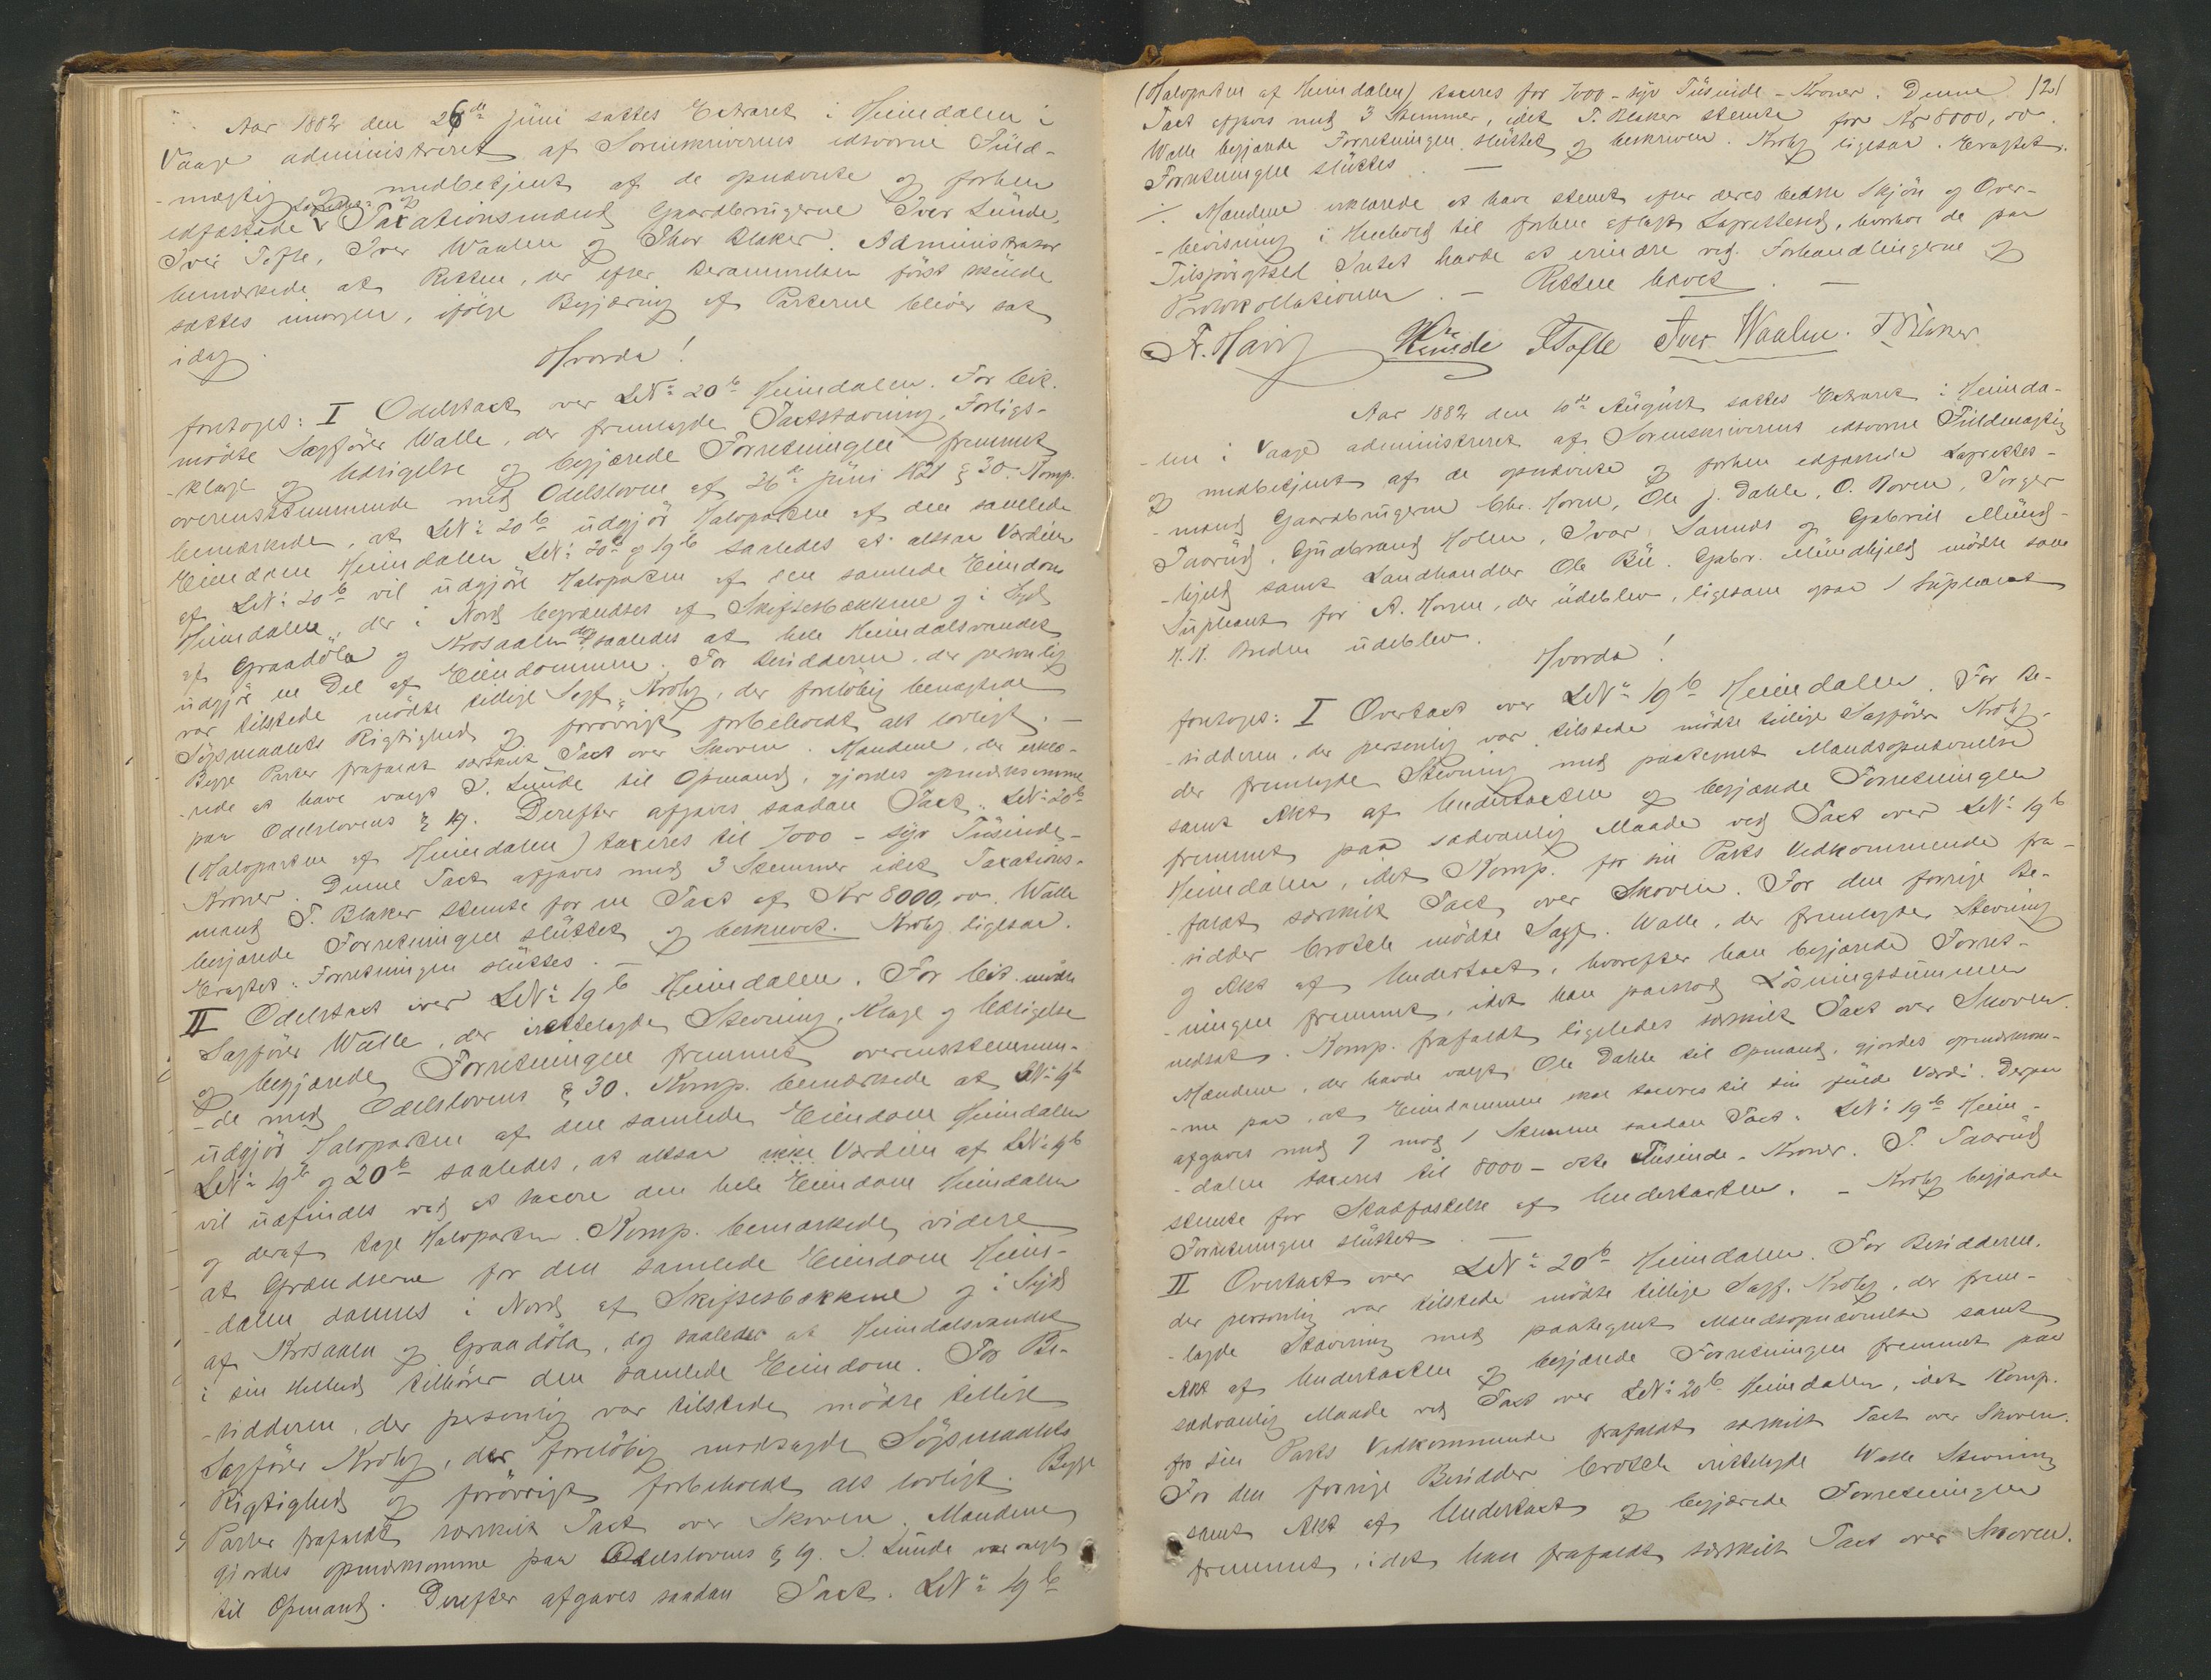 Aar 1882 den 26de Juni sattes Extraret i Heimdalen i
Vaage administreret af Sorenskriverens edsvorne Fuld-
-mægtig og medbetjent af de opnævnte og forhen
edfæstede Lagrettes- og Taxationsmænd Gaardbrugerne Iver Sunde,
Iver Tofte, Iver Waalen og Thor Blaker. Administrator
bemærkede at Retten, der efter Berammelsen först skulde
sættes imorgen, ifölge Begjæring af Parterne bliver sat
idag.
Hvorda!
foretoges: I Odelstaxt over LNo 20b Heimdalen. For Cit.
mödte Sagförer Walle, der fremlagde Taxtstævning, Forligs-
-klage og Udsigelse og begjærede Forretningen fremmet
overensstemmende med Odelsloven af 26de Juni 1821 § 30. Komp.
bemærkede, at LNo 20b udgjör Halvparten af den samlede
Eiendom Heimdalen LNo 20b og 19b saaledes at altsaa Værdien
af LNo 20b vil udgjöre Halvparten af den samlede Eiendom
Heimdalen, der i Nord begrændses af Skiftesbækkene og i Syd
af Graadöla og Krosaaen dog saaledes at hele Heimdalsvandet
udgjör en Del af Eiendommen. For Besidderen, der personlig
var tilstede mödte tillige Sagf. Krohg, der foreløbig benægtede
Sögsmaalets Rigtighed og forövrigt forbeholdt alt lovligt. —
Begge Parter frafaldt særskilt Taxt over Skoven. Mændene, der erklæ-
-rede at have valgt I. Sunde til Opmand, gjordes opmærksomme
paa Odelslovens § 19. Derefter afgaves saadan Taxt: LNo 20b
(Halvparten af Heimdalen) taxeres til 7000 - syv Tusinde -
Kroner. Denne Taxt afgaves med 3 Stemmer idet Taxations-
mand T. Blaker stemte for en Taxt af Kr 8000,00. Walle
begjærede Forretningen sluttet og beskrevet. Krohg ligesaa.
Eragtet: Forretningen sluttes. —
II Odelstaxt over LNo 19b Heimdalen. For Cit. mödte
Sagförer Walle, der irettelagde Stevning, Klage og Udsigelse
og begjærede Forretningen fremmet overensstemmen-
-de med Odelslovens § 30. Komp. bemærkede at LNo 19b
udgjör Halvparten af den samlede Eiendom Heimdalen
LNo 19b og 20b saaledes, at altsaa ikke Værdien af LNo 19b
vil udfindes ved at taxere den hele Eiendom Heimdalen
og deraf tage Halvparten. Komp. bemærkede videre
at Grændserne for den samlede Eiendom Heim-
-dalen dannes i Nord af Skiftesbækkene og i Syd
af Krosaaen og Graadöla, dog saaledes at Heimdalsvandet
i sin Helhed tilhörer den samlede Eiendom. For Be-
-sidderen, der personlig var tilstede, mödte tillige
Sagförer Krohg, der foreløbig modsagde Sögsmaalets
Rigtighed og forövrigt forbeholdt alt lovligt. Begge
Parter frafaldt særskilt Taxt over Skoven. Mændene
gjordes opmærksomme paa Odelslovens § 19. I. Sunde var valgt
til Opmand. Derefter afgaves saadan Taxt. LNo 19b
(Halvparten af Heimdalen) taxeres for 7000 - syv Tusinde - Kroner. Denne 121
Taxt afgaves med 3 Stemmer, idet T. Blaker stemte for Kr 8000,00.
Walle begjærede Forretningen sluttet og beskreven. Krohg ligesaa. Eragtet.
Forretningen sluttes. —
·/. Mændene erklærede at have stemt efter deres bedste Skjön og Over-
-bevisning i Henhold til forhen aflagt Lagretteseed, hvorhos de paa
Tilspörgsel Intet havde at erindre ved Forhandlingerne og
Protokollationen. — Retten hævet. —
Fr. Harry ISunde ITofte Iver Waalen. TBlaker.
Aar 1882 den 10de August sattes Extraret i Heimda-
-len i Vaage administreret af Sorenskriverens edsvorne Fuldmægtig
og medbetjent af de opnævnte og forhen edfæstede Lagrettes-
-mænd Gaardbrugerne Chr. Horne, Ole J. Dahle, O. Roven, Torger
Taarud, Gudbrand Holen, Ivar Sannes og Gabriel Mund-
-hjeld samt Landhandler Ole Bü. Gabr. Mundhjeld mödte som
Supleant for A. Horne, der udeblev, ligesom ogsaa 1 Supleant
H. H. Breden udeblev.
Hvorda!
foretoges: I Overtaxt over LNo 19b Heimdalen. For Be-
-sidderen, der personlig var tilstede mödte tillige Sagförer Krohg
der fremlagde Stevning med paategnet Mandsopnævnelse
samt Akt af Undertaxten og begjærede Forretningen
fremmet paa sædvanlig Maade ved Taxt over LNo 19b
Heimdalen, idet Komp. for sin Parts Vedkommende fra-
-faldt særskilt Taxt over Skoven. For den forrige Be-
-sidder Crotch mödte Sagf. Walle, der fremlagde Stevning
og Akt af Undertaxt, hvorefter han begjærede Forret-
-ningen fremmet, idet han paastod Lösningssummen
nedsat. Komp. frafaldt ligeledes særskilt Taxt over Skoven.
Mændene, der havde valgt Ole Dahle til Opmand, gjordes opmærksom-
-me paa, at Eiendommen skal taxeres til sin fulde Værdi. Derpaa
afgaves med 7 mod 1 Stemme saadan Taxt: LNo 19b Heim-
-dalen taxeres til 8000 - otte Tusinde - Kroner. T. Taarud
stemte for Stadfæstelse af Undertaxten. - Krohg begjærede
Forretningen sluttet. —
II Overtaxt over LNo 20b Heimdalen. For Besidderen,
der personlig var tilstede mödte tillige Sagf. Krohg, der frem-
-lagde Stævning med paategnet Mandsopnævnelse samt
Akt af Undertaxten og begjærede Forretningen fremmet paa
sædvanlig Maade ved Taxt over LNo 20b Heimdalen, idet Komp.
for sin Parts Vedkommende frafaldt særskilt Taxt over Skoven.
For den forrige Besidder Crotch irettelagde Walle Stevning
samt Akt af Undertaxt og begjærede Forretningen
fremmet, idet han frafaldt særskilt Taxt over Skoven.